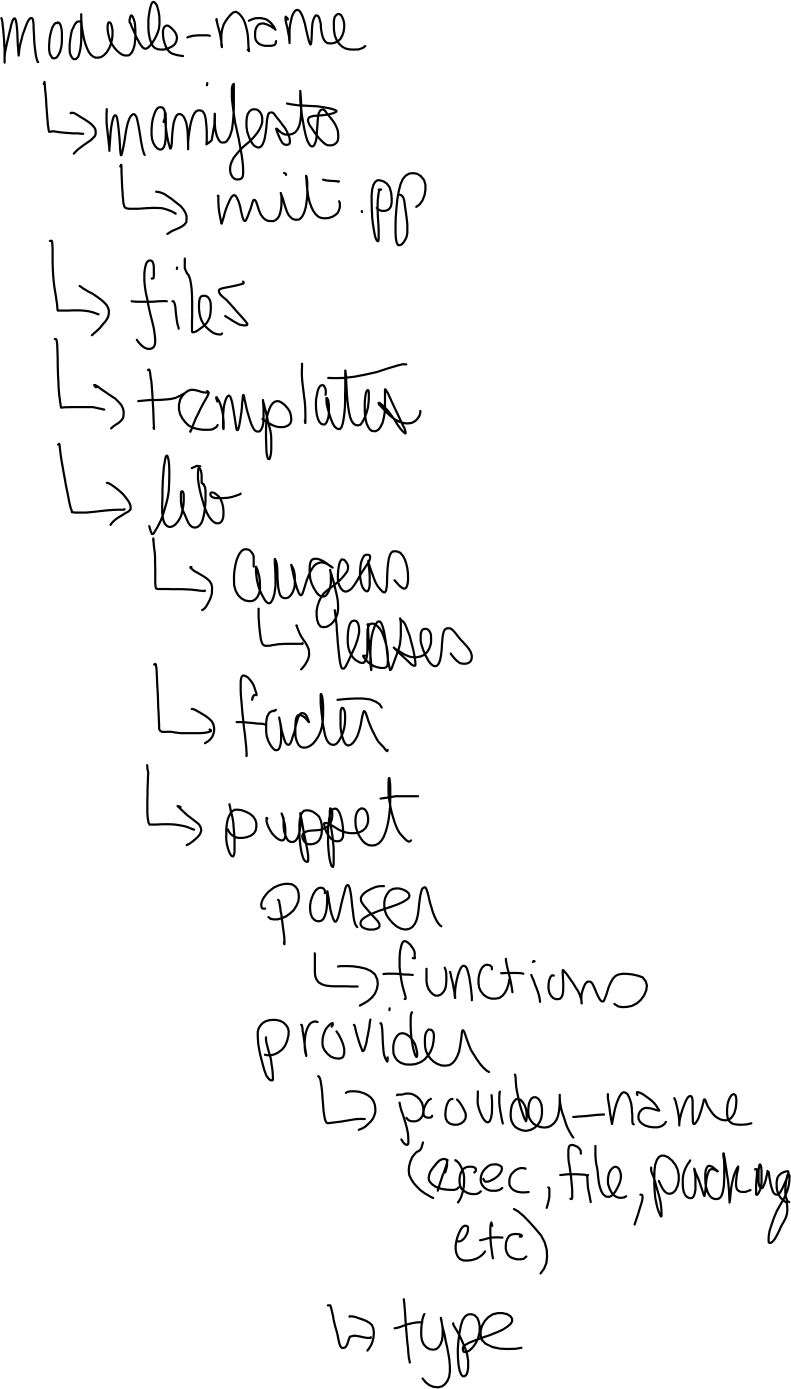 module-name
↳ manifests
↳ init.pp
↳ files
↳ templates
↳ lib
↳ augeas
↳ lenses
↳ facter
↳ puppet
parser
↳ functions
provider
↳ provider-name
(exec, file, packag
etc)
↳ type